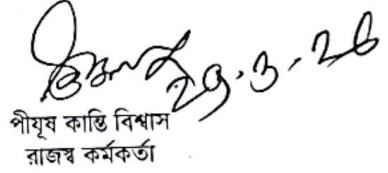 ২৭.৩.২৪
পীযূষ কান্তি বিশ্বাস
রাজস্ব কর্মকর্তা